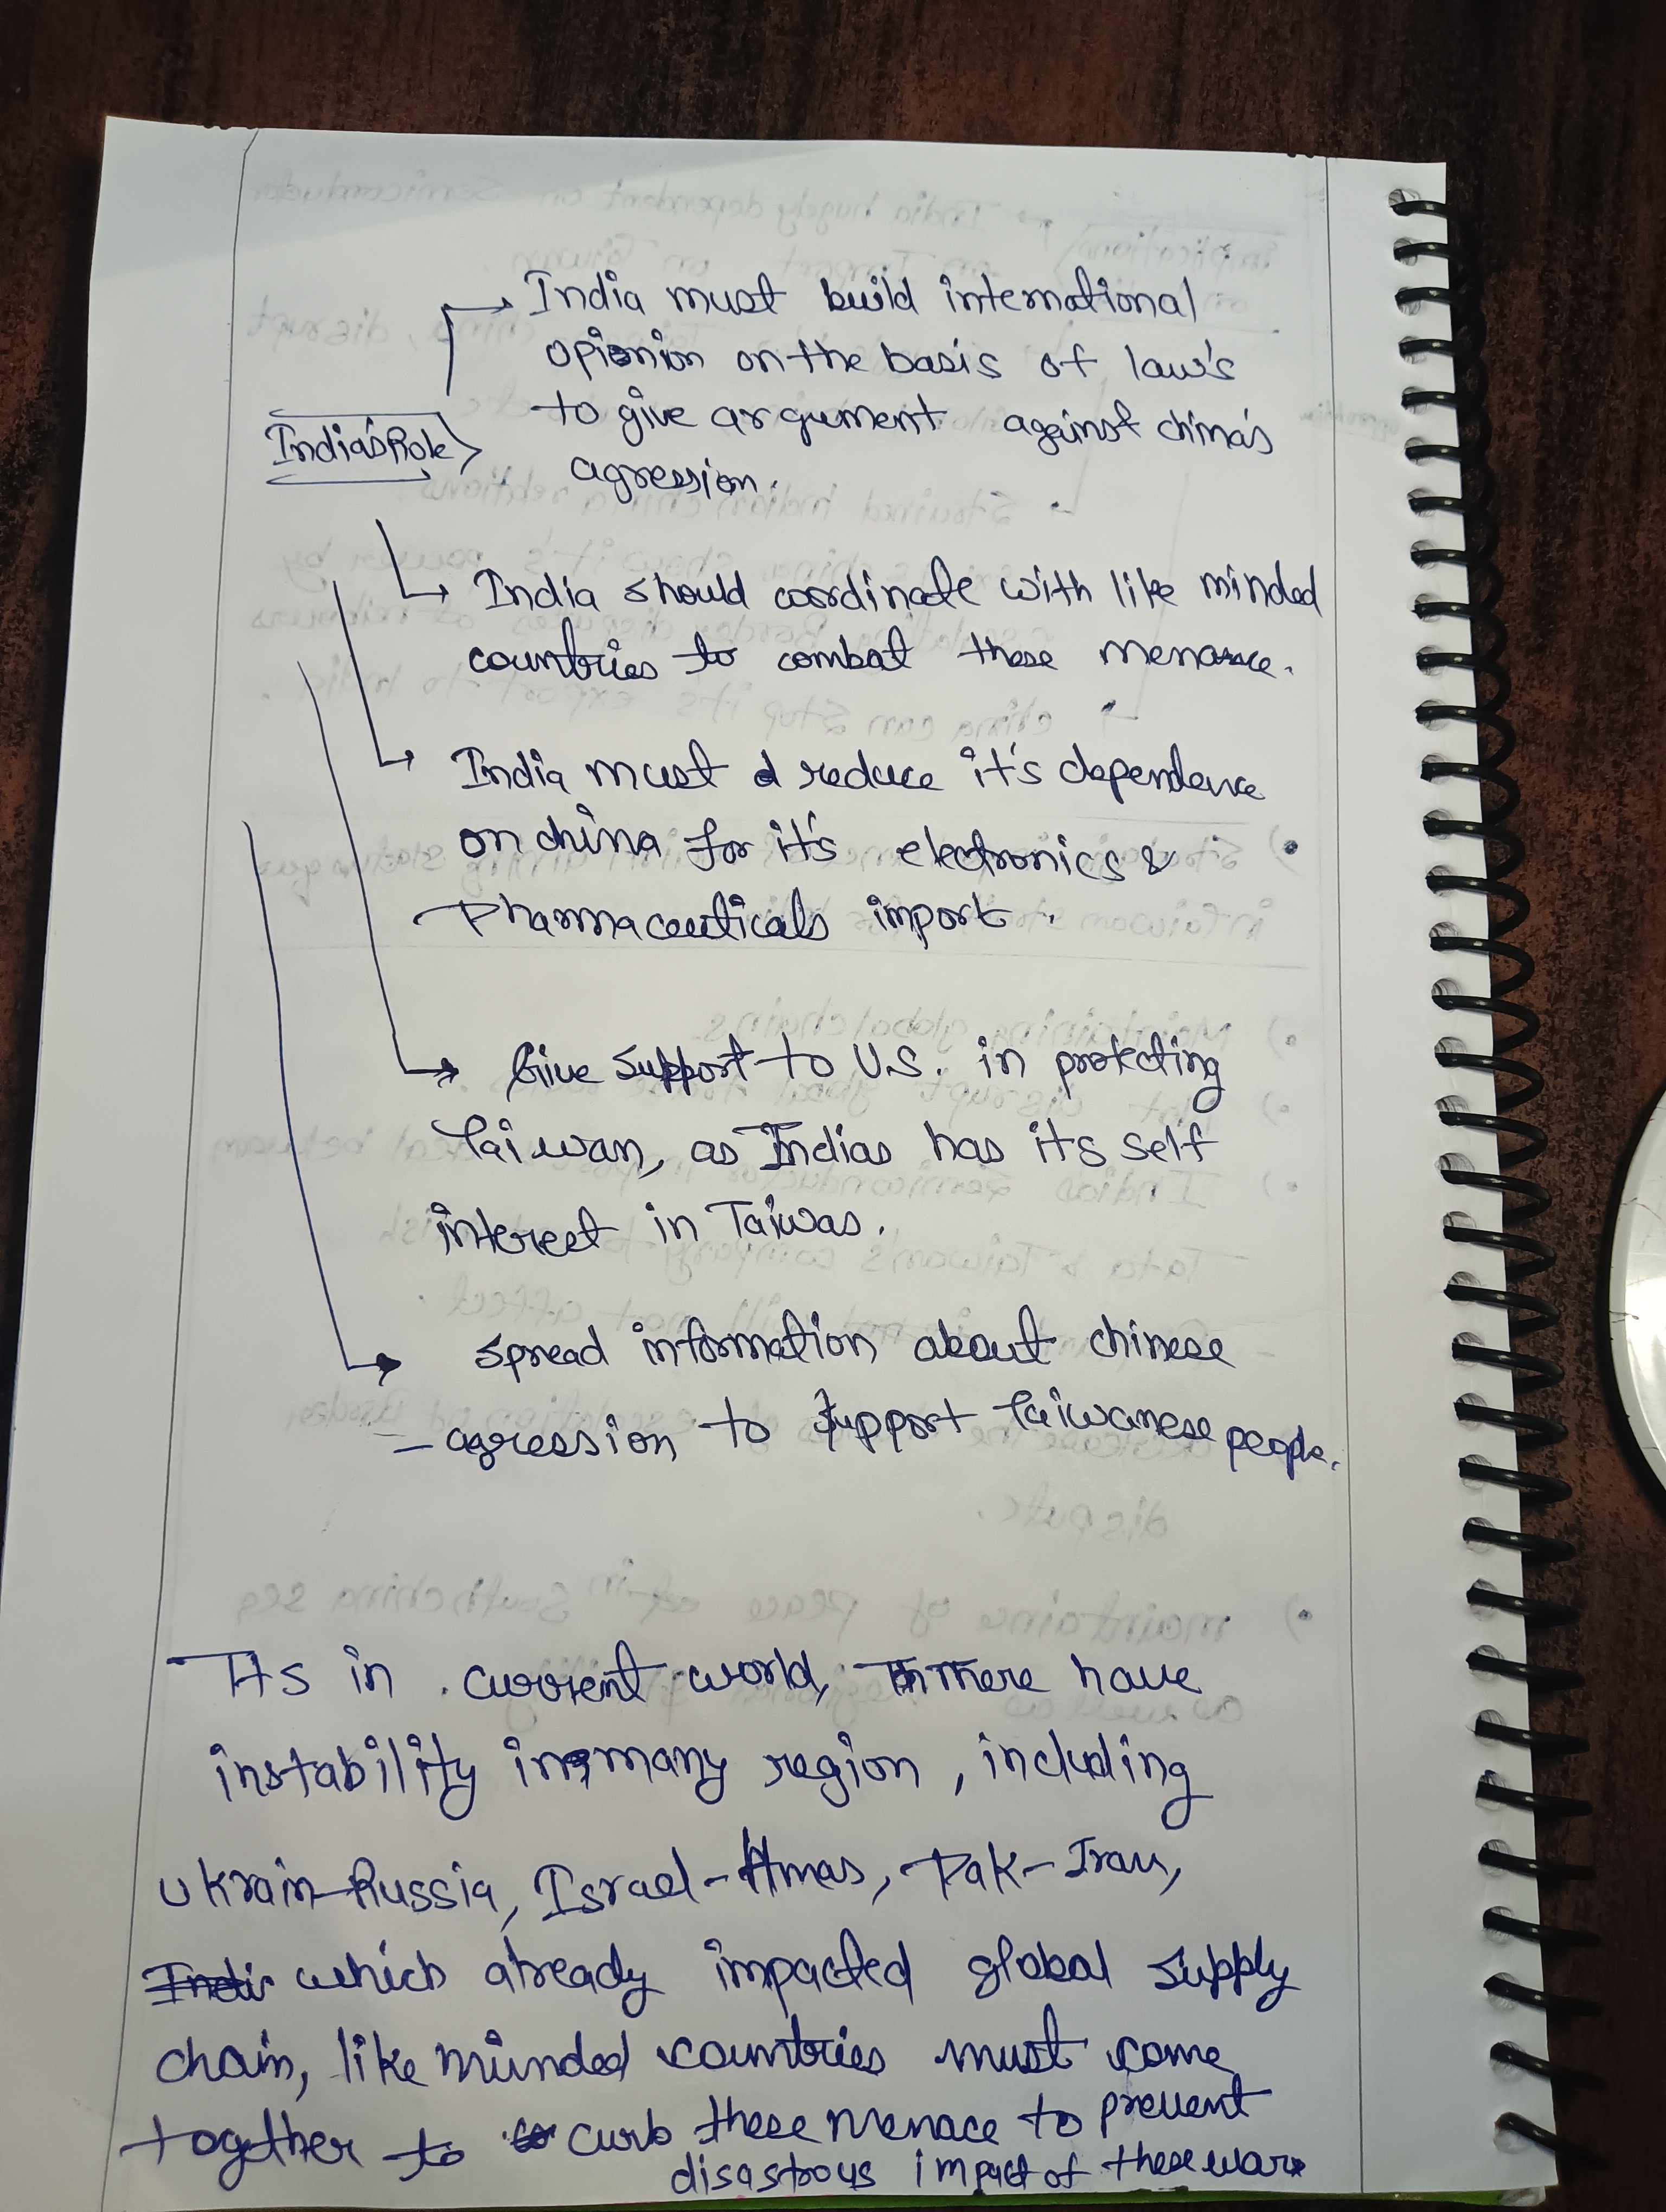 India must build international
opionion on the basis of law's
to give argument against china's
agression.
India's Role
India should coordinate with like minded
countries to combat these menance.
India must reduce it's dependence
on china for it's electronics &
Pharmaceuticals import.
Give support to U.S. in protecting
Taiwan, as Indias has its self
interest in Taiwas.
spread information about chinese
agression to support Taiwanese people.
As in current world, There have
instability in many region, including
Ukrain-Russia, Israel-Hmas, Pak-Iran,
which already impacted global supply
chain, like minded countries must come
together to curb these menace to prevent
disastrous impact of these wars